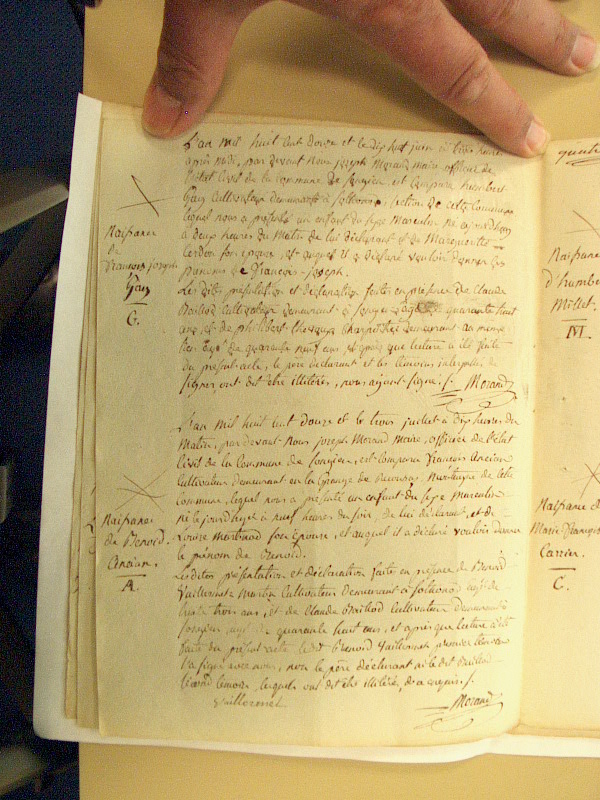 L'an mil huit cent douze et le dix huit juin à trois heures
après midi, par devant nous joseph Morand maire officier de
l'état civil de la commune de Songieu, est comparu humbert
Gay Cultivateur demeurant à Sothonod section de cette Commune
lequel nous a présenté un enfant du sexe Masculin né aujourd'huy
à deux heures du Matin de lui déclarant et de Marguerite
son épouse, et auquel il a déclaré vouloir donner les
prénoms de françois-joseph.
Les dites présentation et déclaration faites en présence de Claude
Cultivateur demeurant à Songieu âgé de quarante huit
ans, et de philibert charpentier demeurant au même
lieu âgé de quarante neuf ans et après que lecture a été faite
du présent acte, le père déclarant et les témoins interpelés de
signer ont dit être illitérés, nous ayant signé. /. Morand
Naissance
de
francois joseph
Gay
G.
L'an mil huit cent douze et le trois juillet à dix heures du
Matin, par devant Nous joseph Morand Maire, officier de l'état
Civil de la Commune de Songieu, est comparu francois Ancian
Cultivateur Demeurant en la Grange de Montagne de cette
Commune, lequel nous a présenté un enfant du sexe masculin
né le jour d'hyer à neuf heures du soir, de lui déclarant, et de
Louise son épouse, et auquel il a déclaré vouloir donner
le prénom de Benoid.
Les dites présentation et déclaration faite en présence de Benoid
Guillermet Cultivateur Demeurant à Sothonod âgé de
trente trois ans, et de Claude Cultivateur demeurant à
Songieu, âgé de quarante huit ans, et après que lecture a été
faite du présent acte ledit Benoid Guillermet premier témoin
l'a signé avec nous, non le père déclarant ni le dit
second témoin, lesquels ont dit être illitéré, de ce requis. /.
Guillermet
Morand
Naissance
de Benoid
Ancian.
A.
Naissance
d'humbert
Millet.
M.
Naissance de
Marie françoise
Carrier.
C.